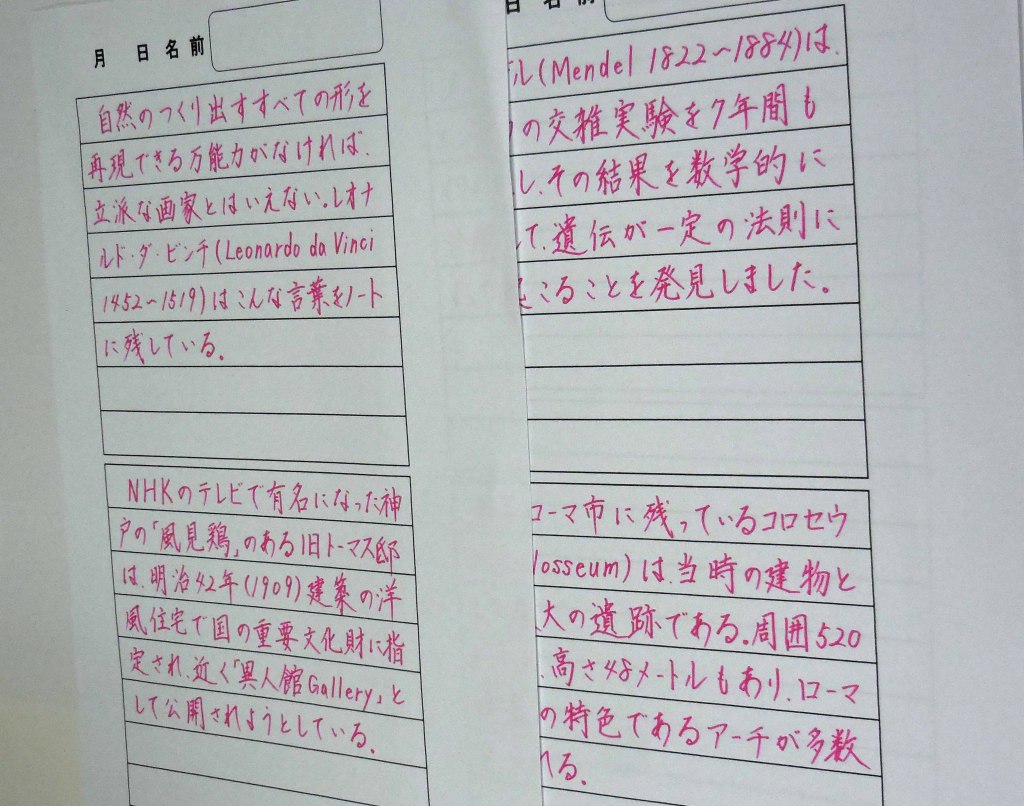 月 日 名前
自然のつくり出すすべての形を
再現できる万能力がなければ、
立派な画家とはいえない。レオナ
ルド・ダ・ビンチ(Leonardo da Vinci
1452〜1519)はこんな言葉をノート
に残している。
NHKのテレビで有名になった神
戸の「風見鶏」のある旧トーマス邸
は、明治42年(1909)建築の洋
風住宅で国の重要文化財に指
定され、近く「異人館Gallery」と
して公開されようとしている。
日 名前
デル(Mendel 1822〜1884)は、
の交雑実験を7年間も
し、その結果を数学的に
て、遺伝が一定の法則に
起こることを発見しました。
ローマ市に残っているコロセウ
losseum)は、当時の建物と
大の遺跡である。周囲520
、高さ48メートルもあり、ローマ
の特色であるアーチが多数
れる。